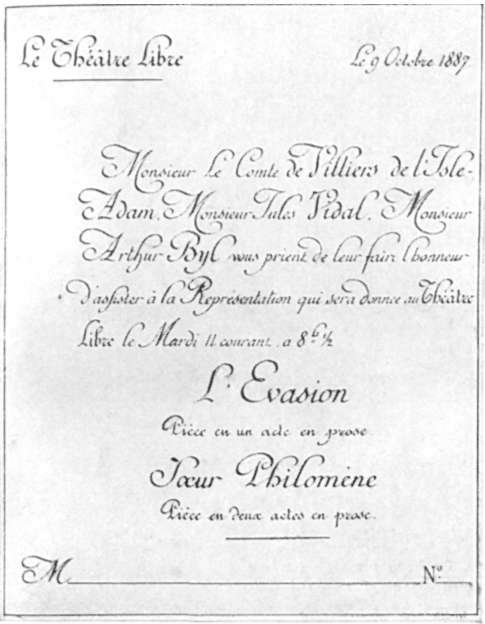 Le Théâtre Libre
Le 9 Octobre 1887
Monsieur Le Comte de Villiers de l'Isle-
Adam, Monsieur Jules Vidal, Monsieur
Arthur Byl vous prient de leur faire l'honneur
d'assister à la Représentation qui sera donnée au Théâtre
Libre le Mardi 11 courant, a 8h ½
L'Evasion
Pièce en un acte en prose.
Sœur Philomène
Pièce en deux actes en prose.
M
No